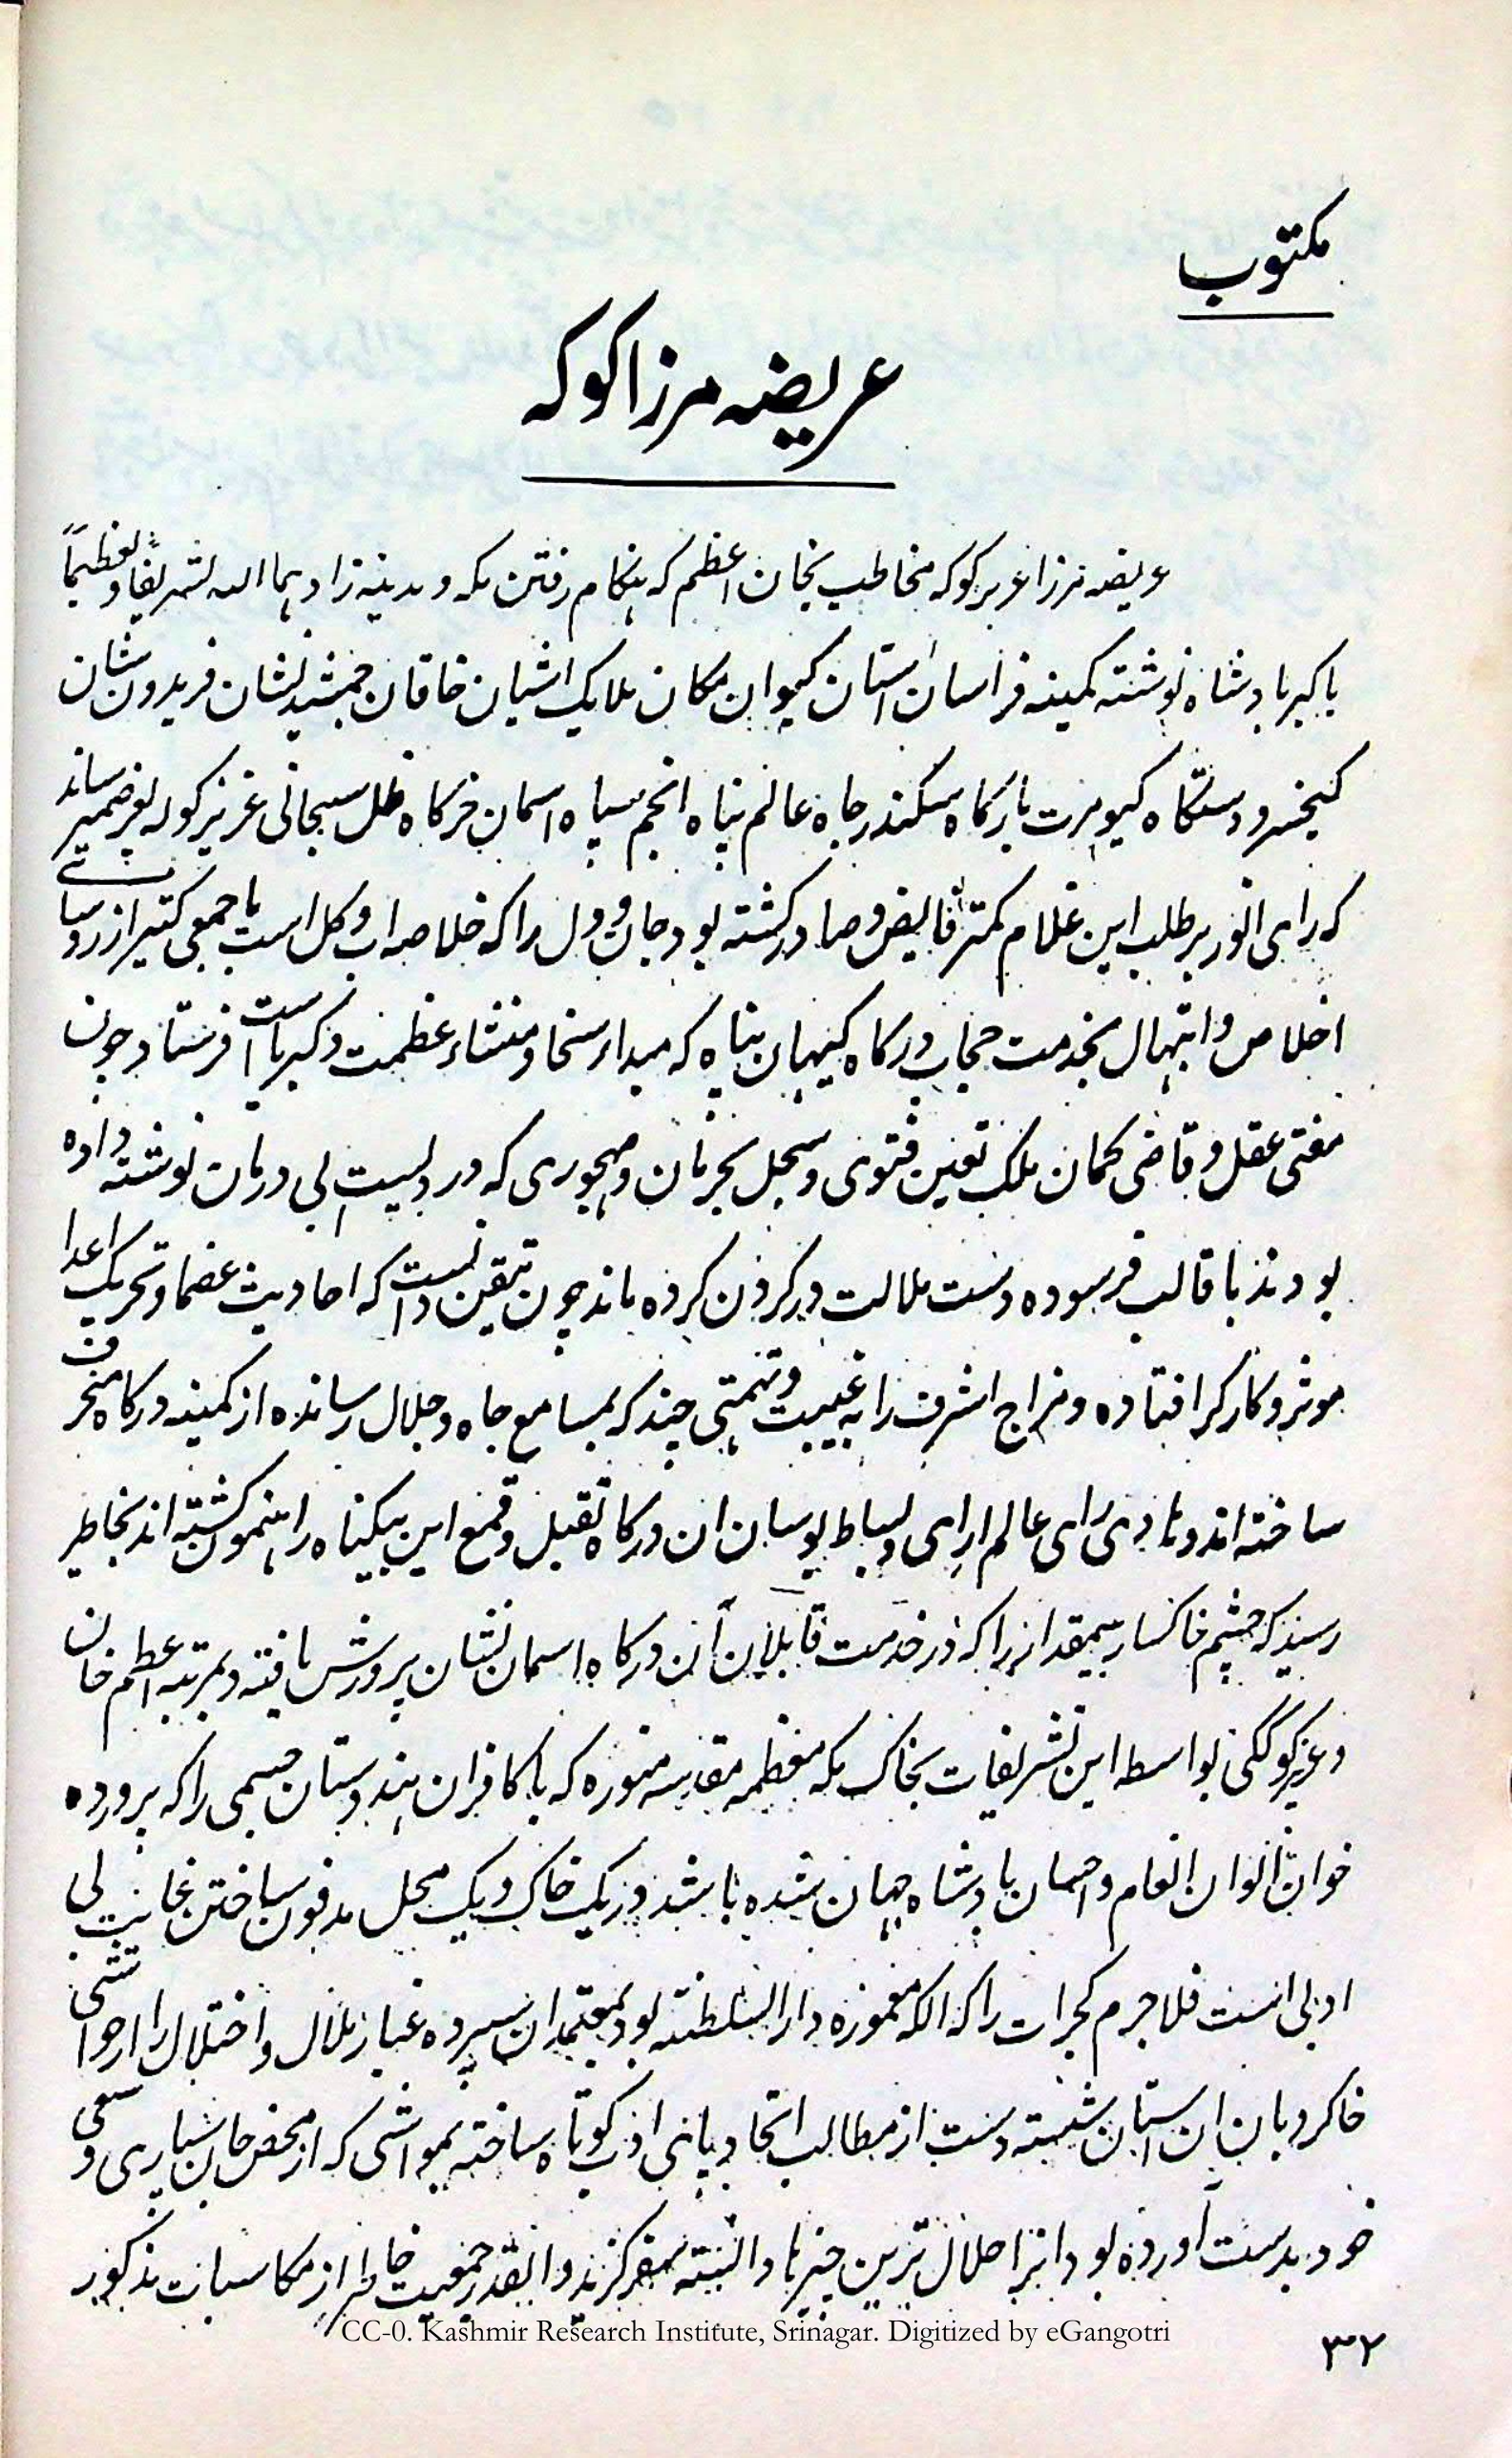 مکتوب
عریضه مرزا کوکه
عریضه مرزا عزیز کوکه مخاطب بخان اعظم که هنگام رفتن مکه و مدینه زادهما الله تشریفاً و تعظیماً
باکبر بادشاه نوشته کمینه فراسان آستان کیوان مکان ملایک اشیان خاقان جمشید نشان فریدون شان
کیخسرو دستگاه کیومرث بارگاه سکندر جاه عالم پناه انجم سپاه اسمان خرگاه ظل سبحانی عزیز کوکه بعرض میرساند
که رای انور بر طلب این غلام کمترین فایض و صادر گشته بود جان و دل را که خلاصه اب و گل است با جمعی کثیر از روسیا
اخلاص و ابتهال بخدمت حجاب درگاه کیهان پناه که مبداء سخا و منشاء عظمت و کبریا است فرستاد چون
مفتی عقل و قاضی گمان ملک تعین فتوی و سجل بحرمان و مهجوری که دردیست بی درمان نوشته داده
بودند با قالب فرسوده دست ملالت در گردن کرده ماند چون متیقن دانست که احادیث عضما و تحریک اعدا
موثر و کارگر افتاده و مزاج اشرف را به غیبت و تهمتی چند که بمسامع جاه و جلال رسانده از کمینه درگاه منحرف
ساخته اند و هادی رای عالم ارای و بساط بوسان ان درگاه تقبل و قمع این بیگناه راهنمون گشته اند بخاطر
رسید که چشم خاکسار بیمقدار را که در خدمت قابلان آن درگاه اسمان نشان پرورش یافته و بمرتبه اعظم خان
و عزیز کوکگی بواسطه این تشریفات بخاک مکه معظمه مقدسه منوره که با کافران هندوستان جسمی را که پرورده
خوان الوان انعام و احسان بادشاه جهان شده باشد در یک خاک و یک محل مدفون ساختن غایت بی
ادبی است فلاجرم گجرات را که الکه مغموزه دار السلطنته بود بمعتمدان سپرده غبار ملال و اختلال را از حواشی
خاکروبان ان استان شسته دست از مطالب اتحاد پای ادب کوتاه ساخته بمواشی که از محض جان سپاری و سعی
خود بدست آورده بود انرا حلال ترین چیزها دانسته سفر گزید و انقدر جمعیت خاطر از مکاسبات مذکور
CC-0. Kashmir Research Institute, Srinagar. Digitized by eGangotri
۳۲